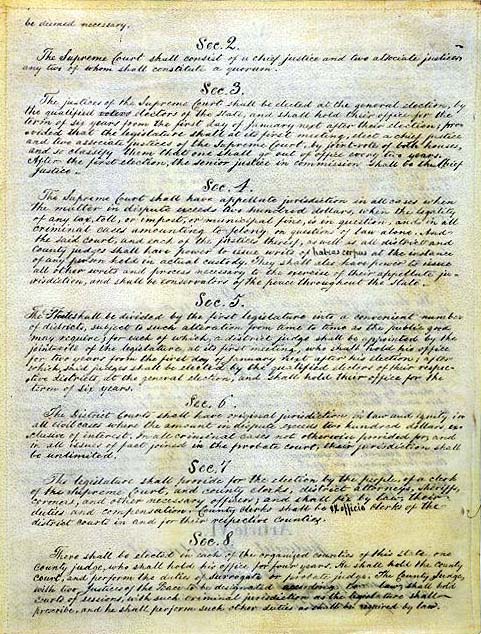 be deemed necessary.
Sec. 2.
The Supreme Court shall consist of a chief justice and two associate justices
any two of whom shall constitute a quorum.
Sec. 3.
The justices of the Supreme Court shall be elected at the general election, by
the qualified voters electors of the state, and shall hold their office for the
term of six years from the first day of January next after their election; pro-
vided that the legislature shall at its first meeting elect a chief justice
and two associate justices of the Supreme Court, by joint vote of both houses,
and so classify them that one shall go out of office every two years.
After the first election, the senior justice in commission shall be the Chief
justice.
Sec. 4.
The Supreme Court shall have appellate jurisdiction in all cases when
the matter in dispute exceeds two hundred dollars, when the legality
of any tax, toll, or impost, or municipal fine, is in question, and in all
criminal cases amounting to felony, on questions of law alone. And
the said court, and each of the justices thereof, as well as all district and
county judges shall have power to issue writs of habeas corpus at the instance
of any person held in actual custody. They shall also have power to issue
all other writs and process necessary to the exercise of their appellate ju-
risdiction, and shall be conservators of the peace throughout the state.
Sec. 5.
The State shall be divided by the first legislature into a convenient number
of districts, subject to such alteration from time to time as the public good
may require; for each of which, a district judge shall be appointed by the
joint vote of the legislature, at its first meeting, who shall hold his office
for two years from the first day of January next after his election; after
which, said judges shall be elected by the qualified electors of their respec-
tive districts, at the general election, and shall hold their office for the
term of six years.
Sec. 6.
The District Courts shall have original jurisdiction, in law and equity, in
all civil cases where the amount in dispute exceeds two hundred dollars, ex-
clusive of interest. In all criminal cases not otherwise provided for, and
in all issues of fact joined in the probate court, their jurisdiction shall
be unlimited.
Sec. 7
The legislature shall provide for the election, by the people, of a clerk
of the Supreme Court, and county clerks, district attorneys, sheriffs,
coroners, and other necessary officers; and shall fix by law, their
duties and compensation. County clerks shall be ex officio clerks of the
district courts in and for their respective counties.
Sec. 8.
There shall be elected in each of the organized counties of this state, one
county judge, who shall hold his office for four years. He shall hold the county
court, and perform the duties of surrogate or probate judge. The County Judge,
with two Justices of the Peace to be designated according to law, shall hold
courts of sessions, with such criminal jurisdiction as the legislature shall
prescribe, and he shall perform such other duties as shall be required by law.